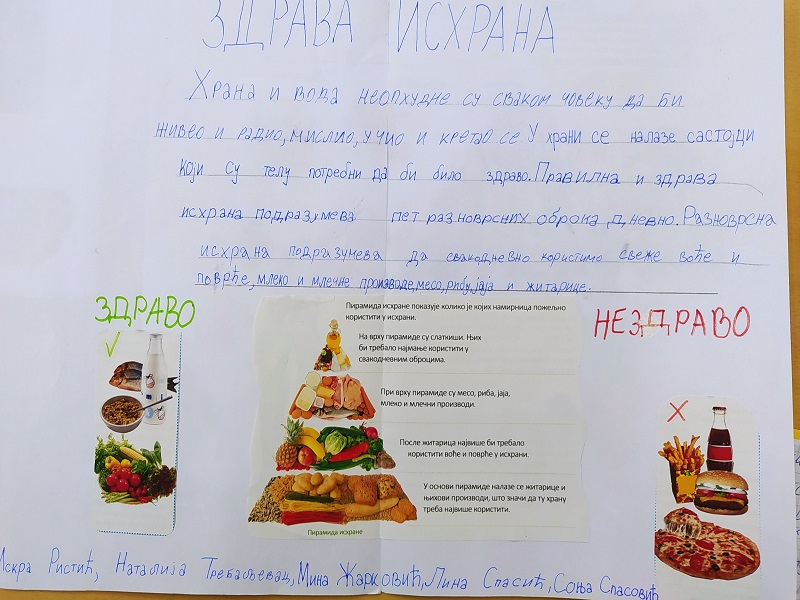 ЗДРАВА ИСХРАНА
Храна и вода неопхудне су сваком човеку да би
живео и радио, мислио, учио и кретао се У храни се налазе састојци
који су телу потребни да би било здраво. Правилна и здрава
исхрана подразумева пет разноврсних оброка дневно. Разноврсна
исхрана подразумева да свакодневно користимо свеже воће и
поврће, млеко и млечне производе, месо, рибу, јаја и житарице.
ЗДРАВО
НЕЗДРАВО
Пирамида исхране показује колико је којих намирница пожељно
користити у исхрани.
На врху пирамиде су слаткиши. Њих
би требало најмање користити у
свакодневним оброцима.
При врху пирамиде су месо, риба, јаја,
млеко и млечни производи.
После житарица највише би требало
користити воће и поврће у исхрани.
У основи пирамиде налазе се житарице и
њихови производи, што значи да ту храну
треба највише користити.
Пирамида исхране
Искра Ристић, Наталија Требаљевац, Мина Жарковић, Лина Спасић, Соња Спасовић